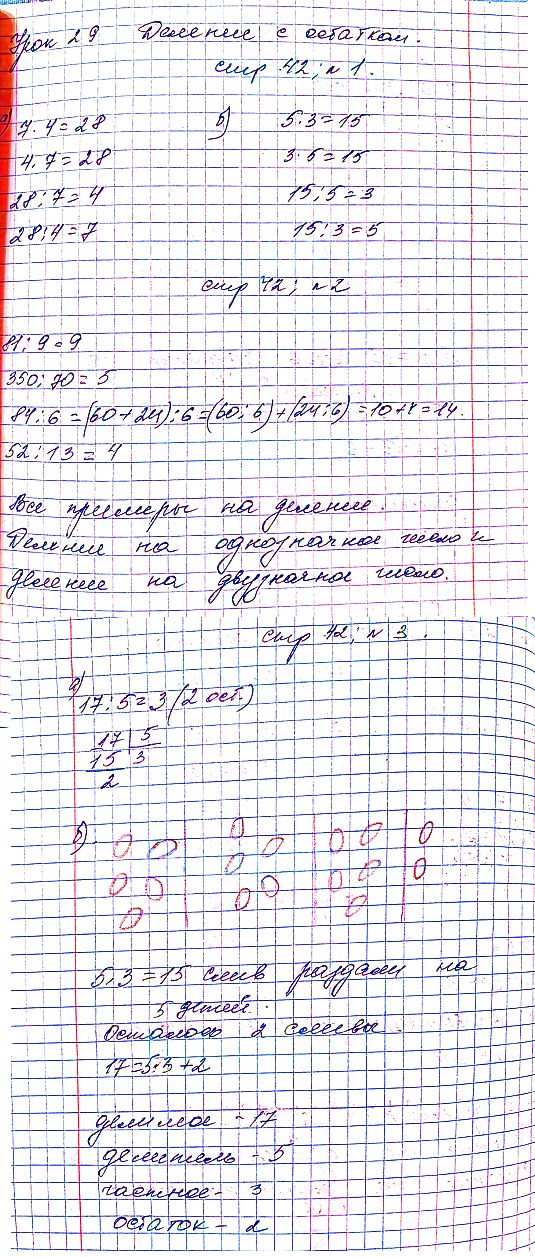 Урок 29 Деление с остатком.
стр 42; № 1.
а) 7·4=28 б) 5·3=15
4·7=28 3·5=15
28:7=4 15:5=3
28:4=7 15:3=5
стр 42; №2
81:9=9
350:70=5
84:6=(60+24):6=(60:6)+(24:6)=10+4=14.
52:13=4
Все примеры на деление.
Деление на однозначное число и
деление на двузначное число.
стр 42; № 3.
а)
17:5=3(2 ост.)
17 5
15 3
2
б)
5·3=15 слив раздали на
5 детей.
Осталось 2 сливы.
17=5·3+2
делимое - 17
делитель - 5
частное - 3
остаток - 2